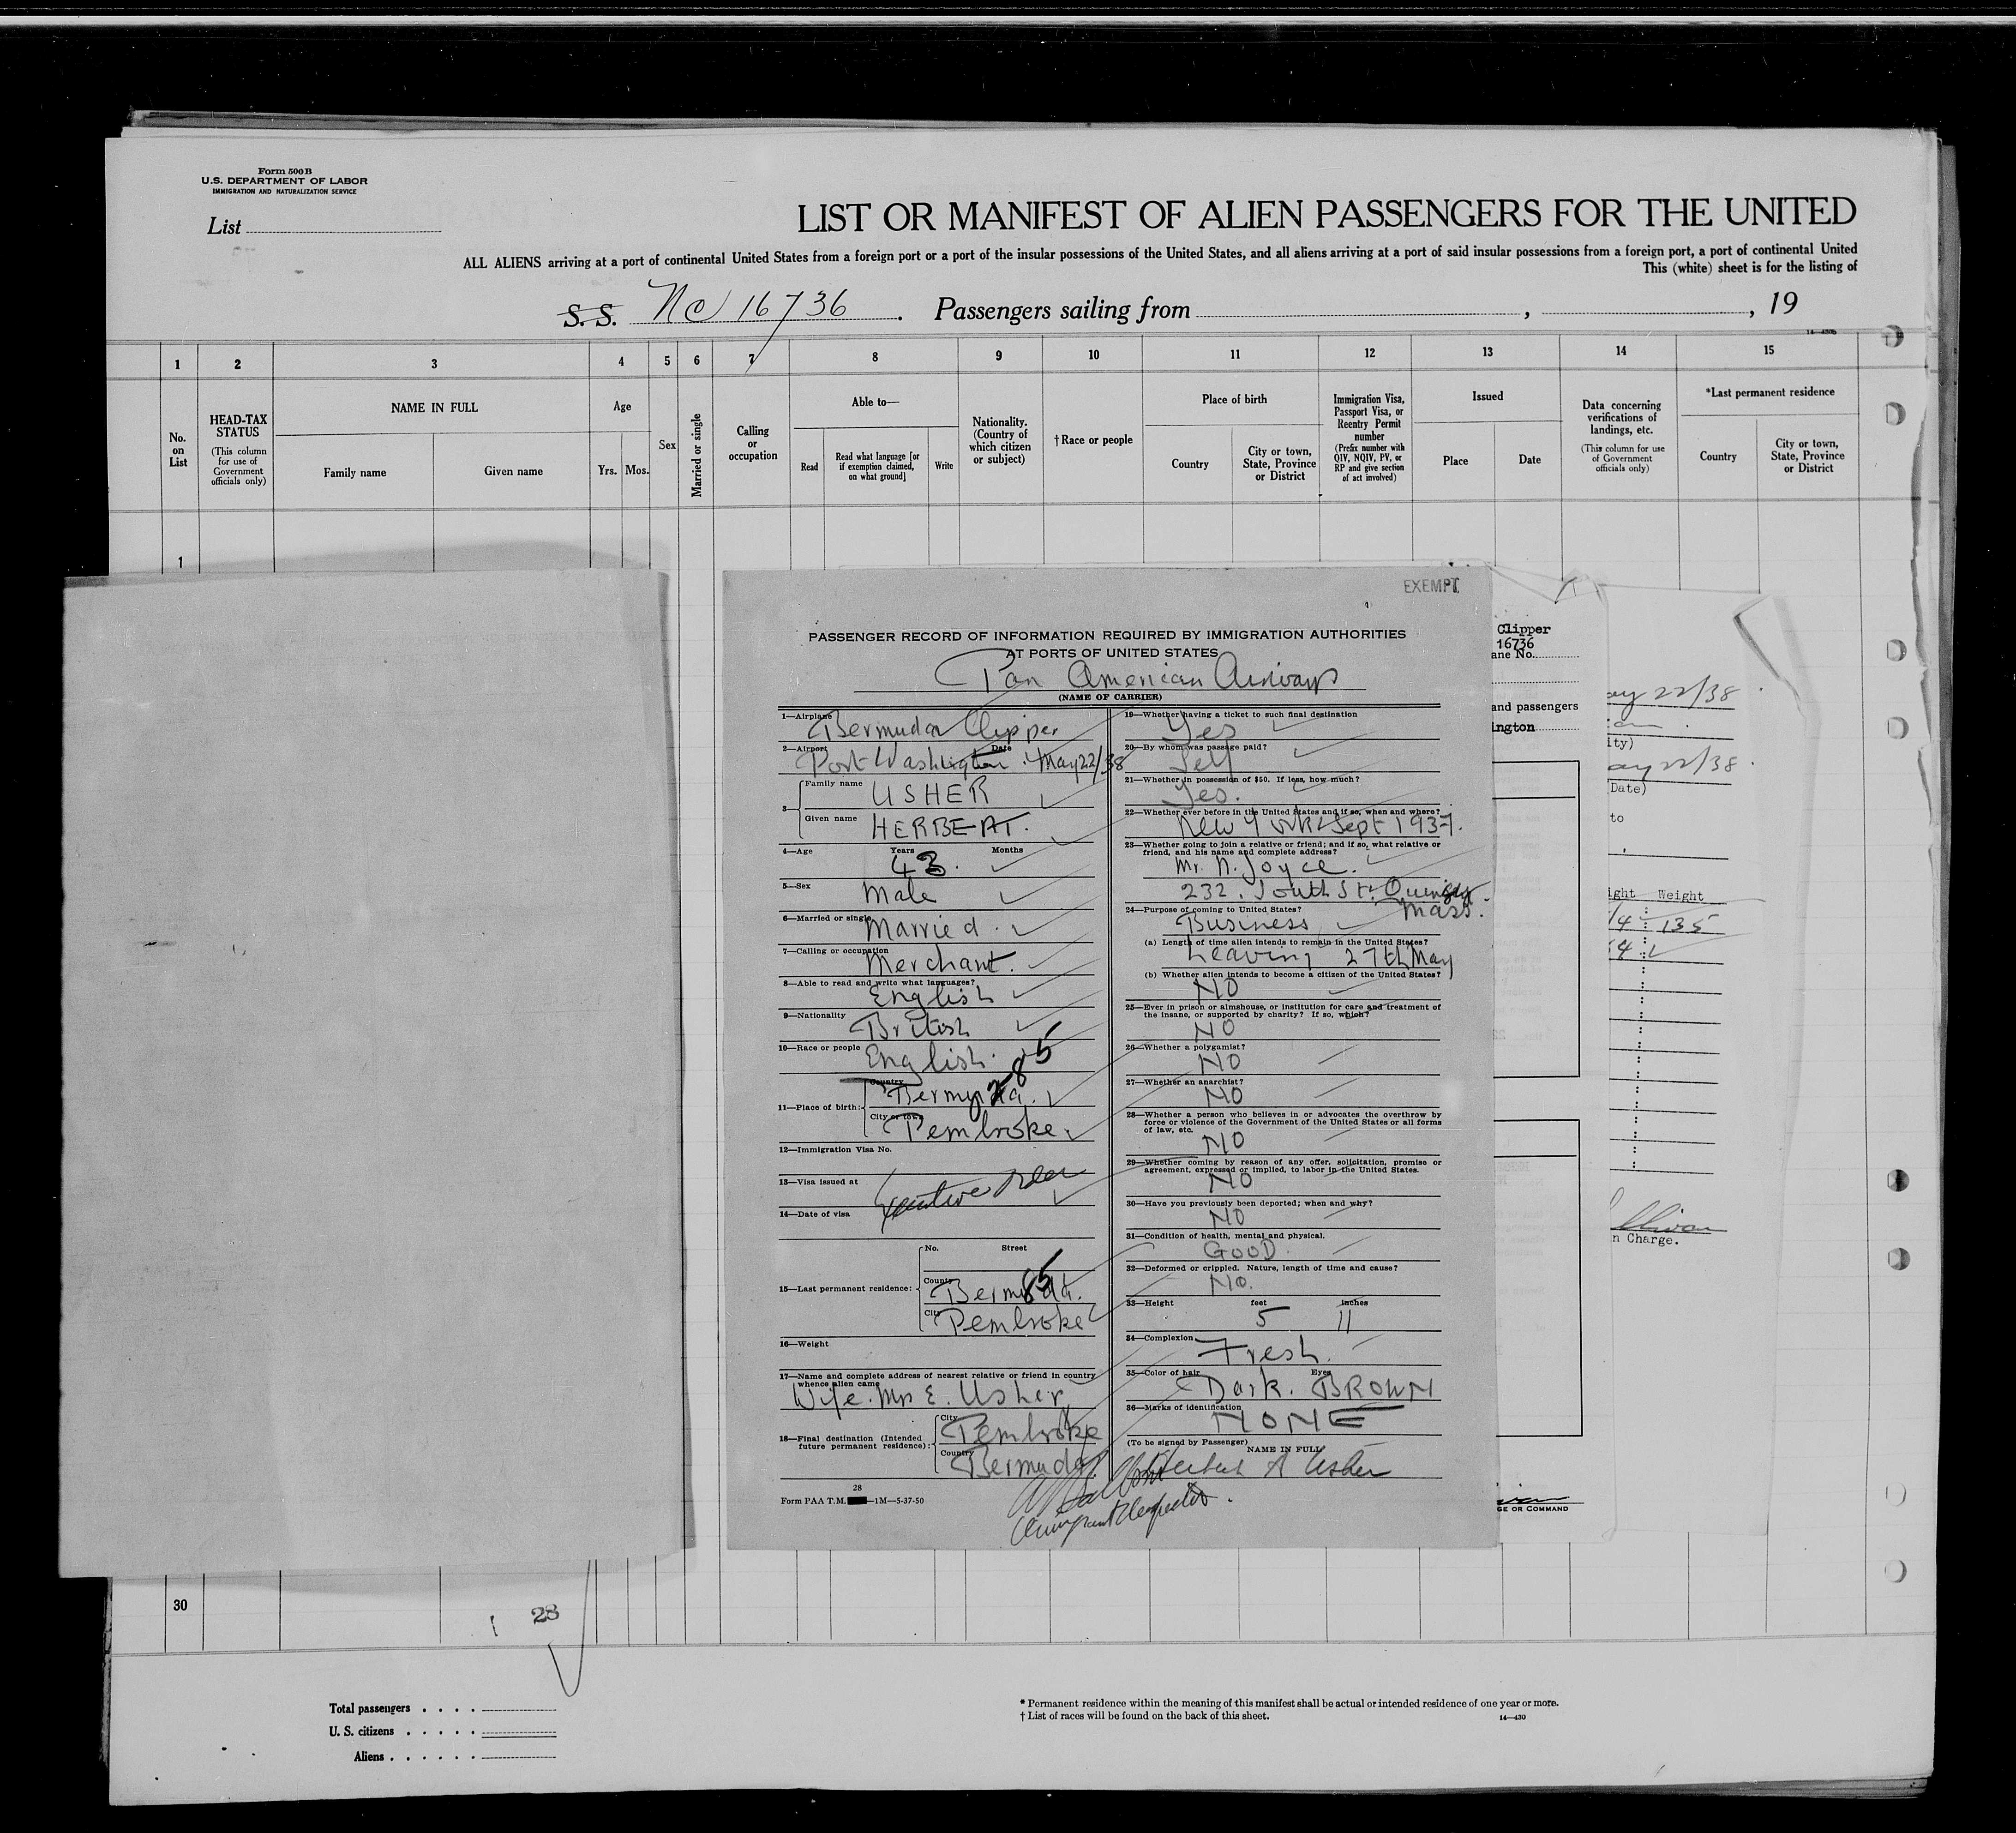 Form 500B
U.S. DEPARTMENT OF LABOR
IMMIGRATION AND NATURALIZATION SERVICE
List
LIST OR MANIFEST OF ALIEN PASSENGERS FOR THE UNITED
ALL ALIENS arriving at a port of continental United States from a foreign port or a port of the insular possessions of the United States, and all aliens arriving at a port of said insular possessions from a foreign port, a port of continental United
This (white) sheet is for the listing of
S. S. NC 16736. Passengers sailing from , , 19
14—430b
1 2 3 4 5 6 7 8 9 10 11 12 13 14 15
No. on List
HEAD-TAX STATUS
(This column for use of Government officials only)
NAME IN FULL
Family name
Given name
Age
Yrs. Mos.
Sex
Married or single
Calling or occupation
Able to—
Read
Read what language [or if exemption claimed, on what ground]
Write
Nationality. (Country of which citizen or subject)
† Race or people
Place of birth
Country
City or town, State, Province or District
Immigration Visa, Passport Visa, or Reentry Permit number
(Prefix number with QIV, NQIV, PV, or RP and give section of act involved)
Issued
Place
Date
Data concerning verifications of landings, etc.
(This column for use of Government officials only)
*Last permanent residence
Country
City or town, State, Province or District
1
EXEMPT
PASSENGER RECORD OF INFORMATION REQUIRED BY IMMIGRATION AUTHORITIES
AT PORTS OF UNITED STATES
Pan American Airways
(NAME OF CARRIER)
1—Airplane Bermuda Clipper
2—Airport Date
Port Washington. May 22/38
3— Family name USHER
Given name HERBERT.
4—Age Years Months
43.
5—Sex Male
6—Married or single Married.
7—Calling or occupation Merchant.
8—Able to read and write what languages?
English
9—Nationality British
10—Race or people English.
285
11—Place of birth: Country Bermuda.
City or town Pembroke.
12—Immigration Visa No.
13—Visa issued at Executive Order
14—Date of visa
15—Last permanent residence: No. Street
Country Bermuda.
85
City Pembroke
16—Weight
17—Name and complete address of nearest relative or friend in country whence alien came
Wife. Mrs E. Usher,
18—Final destination (Intended future permanent residence): City Pembroke
Country Bermuda
28
Form PAA T.M. —1M—5-37-50
19—Whether having a ticket to such final destination
Yes
20—By whom was passage paid?
Self
21—Whether in possession of $50. If less, how much?
Yes.
22—Whether ever before in the United States and if so, when and where?
New York Sept 1937.
23—Whether going to join a relative or friend; and if so, what relative or
friend, and his name and complete address?
Mr. N. Joyce.
232. South St. Quincy.
Mass.
24—Purpose of coming to United States?
Business
(a) Length of time alien intends to remain in the United States?
Leaving 27th May
(b) Whether alien intends to become a citizen of the United States?
NO
25—Ever in prison or almshouse, or institution for care and treatment of
the insane, or supported by charity? If so, which?
NO
26—Whether a polygamist?
NO
27—Whether an anarchist?
NO
28—Whether a person who believes in or advocates the overthrow by
force or violence of the Government of the United States or all forms
of law, etc.
NO
29—Whether coming by reason of any offer, solicitation, promise or
agreement, expressed or implied, to labor in the United States.
NO
30—Have you previously been deported; when and why?
NO
31—Condition of health, mental and physical.
GOOD.
32—Deformed or crippled. Nature, length of time and cause?
No.
33—Height feet inches
5 11
34—Complexion
Fresh.
35—Color of hair Eyes
Dark. BROWN
36—Marks of identification
NONE
(To be signed by Passenger)
NAME IN FULL
Herbert A Usher
Immigrant Inspector.
Clipper
16736
ane No.
and passengers
ington
GE OR COMMAND
ay 22/38
ity)
ay 22/38.
Date)
to
ight Weight
/4 : 135
n Charge.
30
28
Total passengers
U. S. citizens
Aliens
* Permanent residence within the meaning of this manifest shall be actual or intended residence of one year or more.
† List of races will be found on the back of this sheet.
14—430